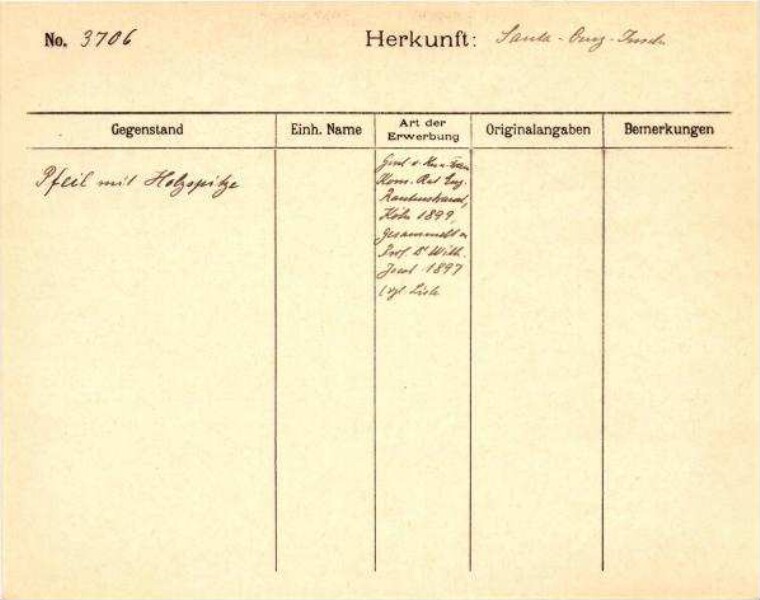 No. 3706 Herkunft: Santa-Cruz-Inseln
Gegenstand Einh. Name Art der Erwerbung Originalangaben Bemerkungen
Pfeil mit Holzspitze
Gesch. v. Frau
Kom. Rat Eug.
Rautenstrauch,
Köln 1899,
gesammelt v.
Prof. Dr Wilh.
Joest 1897
(vgl. Liste